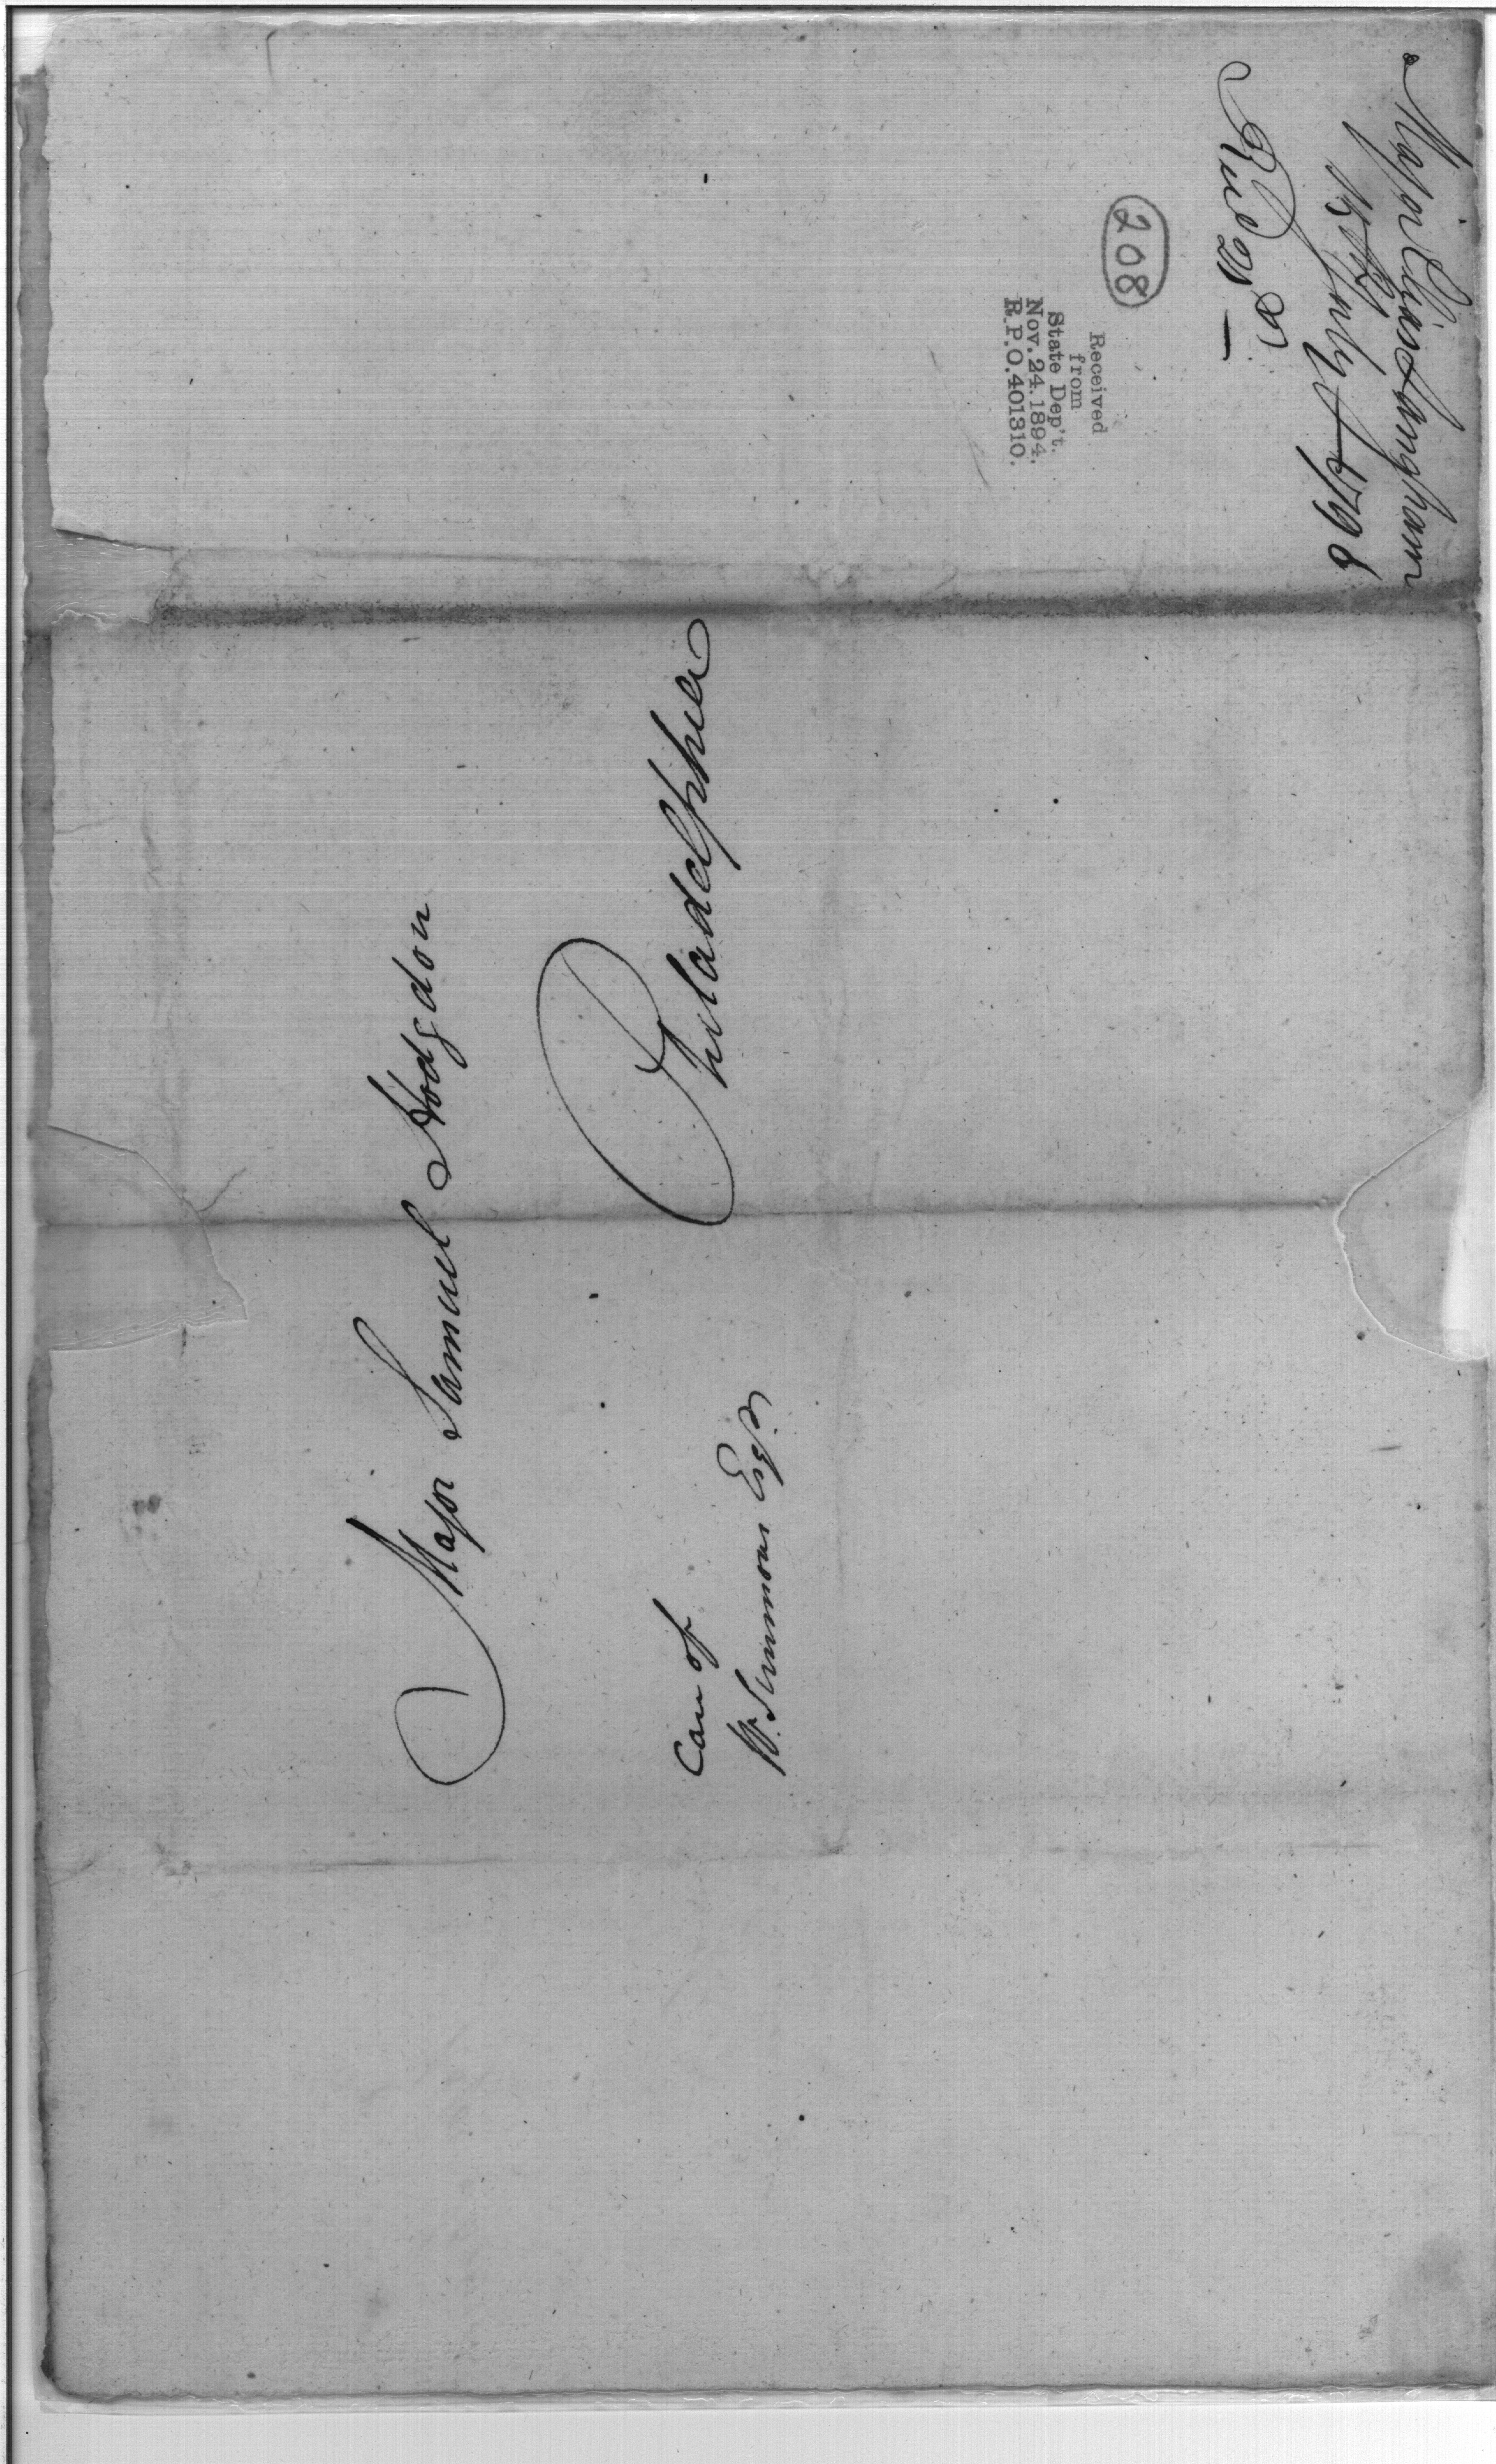 Major Samuel Hodgdon
Philadelphia
Care of
W. Simmons Esqr.
Major Elias Langham
15 July 1798
Recd 21st
208
Received
from
State Dep't.
Nov. 24. 1894.
R.P.O. 401310.